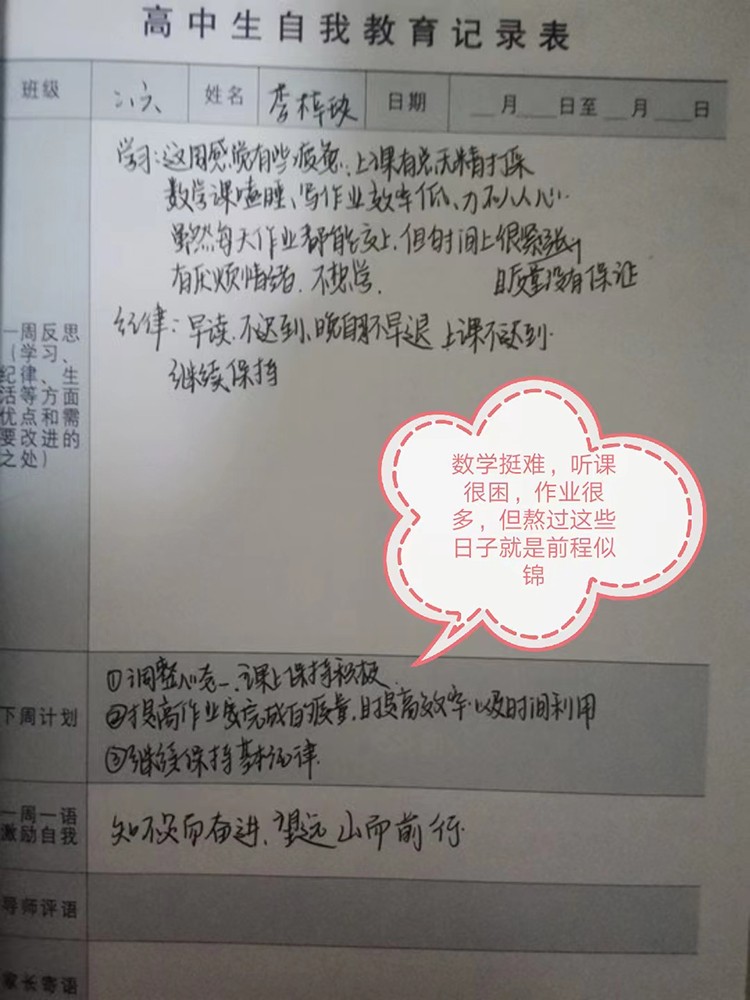 高中生自我教育记录表
班级 姓名 李梓玖 日期 __月__日至__月__日
一周反思
(学习、
纪律、生
活等方面
优点和需
要改进的
之处)
学习:这周感觉有些疲惫,上课有点无精打采
数学课嗑睡、写作业效率低、力不从心.
虽然每天作业都能交上,但时间上很紧张,
且质量没有保证
有厌烦情绪.不想学.
纪律:早读.不迟到、晚自习不早退 上课不迟到.
继续保持
数学挺难,听课
很困,作业很
多,但熬过这些
日子就是前程似
锦
下周计划
①调整心态 课上保持积极.
②提高作业 完成的质量,且提高效率.以及时间利用
③继续保持基本纪律.
一周一语
激励自我
知不足而奋进、望远山而前行.
导师评语
家长寄语